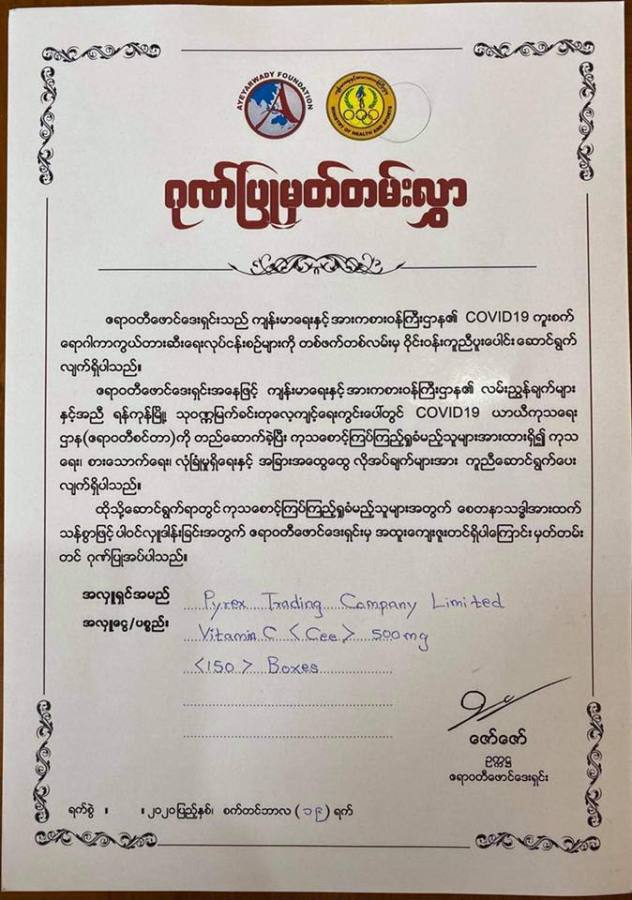 AYEYARWADY FOUNDATION
MINISTRY OF HEALTH AND SPORTS
ဂုဏ်ပြုမှတ်တမ်းလွှာ
ဧရာဝတီဖောင်ဒေးရှင်းသည် ကျန်းမာရေးနှင့်အားကစားဝန်ကြီးဌာန၏ COVID19 ကူးစက်
ရောဂါကာကွယ်တားဆီးရေးလုပ်ငန်းစဉ်များကို တစ်ဖက်တစ်လမ်းမှ ဝိုင်းဝန်းကူညီပူးပေါင်း ဆောင်ရွက်
လျက်ရှိပါသည်။
ဧရာဝတီဖောင်ဒေးရှင်းအနေဖြင့် ကျန်းမာရေးနှင့်အားကစားဝန်ကြီးဌာန၏ လမ်းညွှန်ချက်များ
နှင့်အညီ ရန်ကုန်မြို့ သုဝဏ္ဏမြက်ခင်းတုလေ့ကျင့်ရေးကွင်းပေါ်တွင် COVID19 ယာယီကုသရေး
ဌာန(ဧရာဝတီစင်တာ)ကို တည်ဆောက်ခဲ့ပြီး ကုသစောင့်ကြပ်ကြည့်ရှုခံမည့်သူများအားထားရှိ၍ ကုသ
ရေး၊ စားသောက်ရေး၊ လုံခြုံမှုရှိရေးနှင့် အခြားအထွေထွေ လိုအပ်ချက်များအား ကူညီဆောင်ရွက်ပေး
လျက်ရှိပါသည်။
ထိုသို့ဆောင်ရွက်ရာတွင် ကုသစောင့်ကြပ်ကြည့်ရှုခံမည့်သူများအတွက် စေတနာသဒ္ဓါအားထက်
သန်စွာဖြင့် ပါဝင်လှူဒါန်းခြင်းအတွက် ဧရာဝတီဖောင်ဒေးရှင်းမှ အထူးကျေးဇူးတင်ရှိပါကြောင်း မှတ်တမ်း
တင် ဂုဏ်ပြုအပ်ပါသည်။
အလှူရှင်အမည် Pyrex Trading Company Limited
အလှူငွေ/ပစ္စည်း Vitamin C <Cee> 500mg
<150> Boxes
ဇော်ဇော်
ဥက္ကဋ္ဌ
ဧရာဝတီဖောင်ဒေးရှင်း
ရက်စွဲ ။ ။ ၂၀၂၀ပြည့်နှစ်၊ စက်တင်ဘာလ (၁၉) ရက်